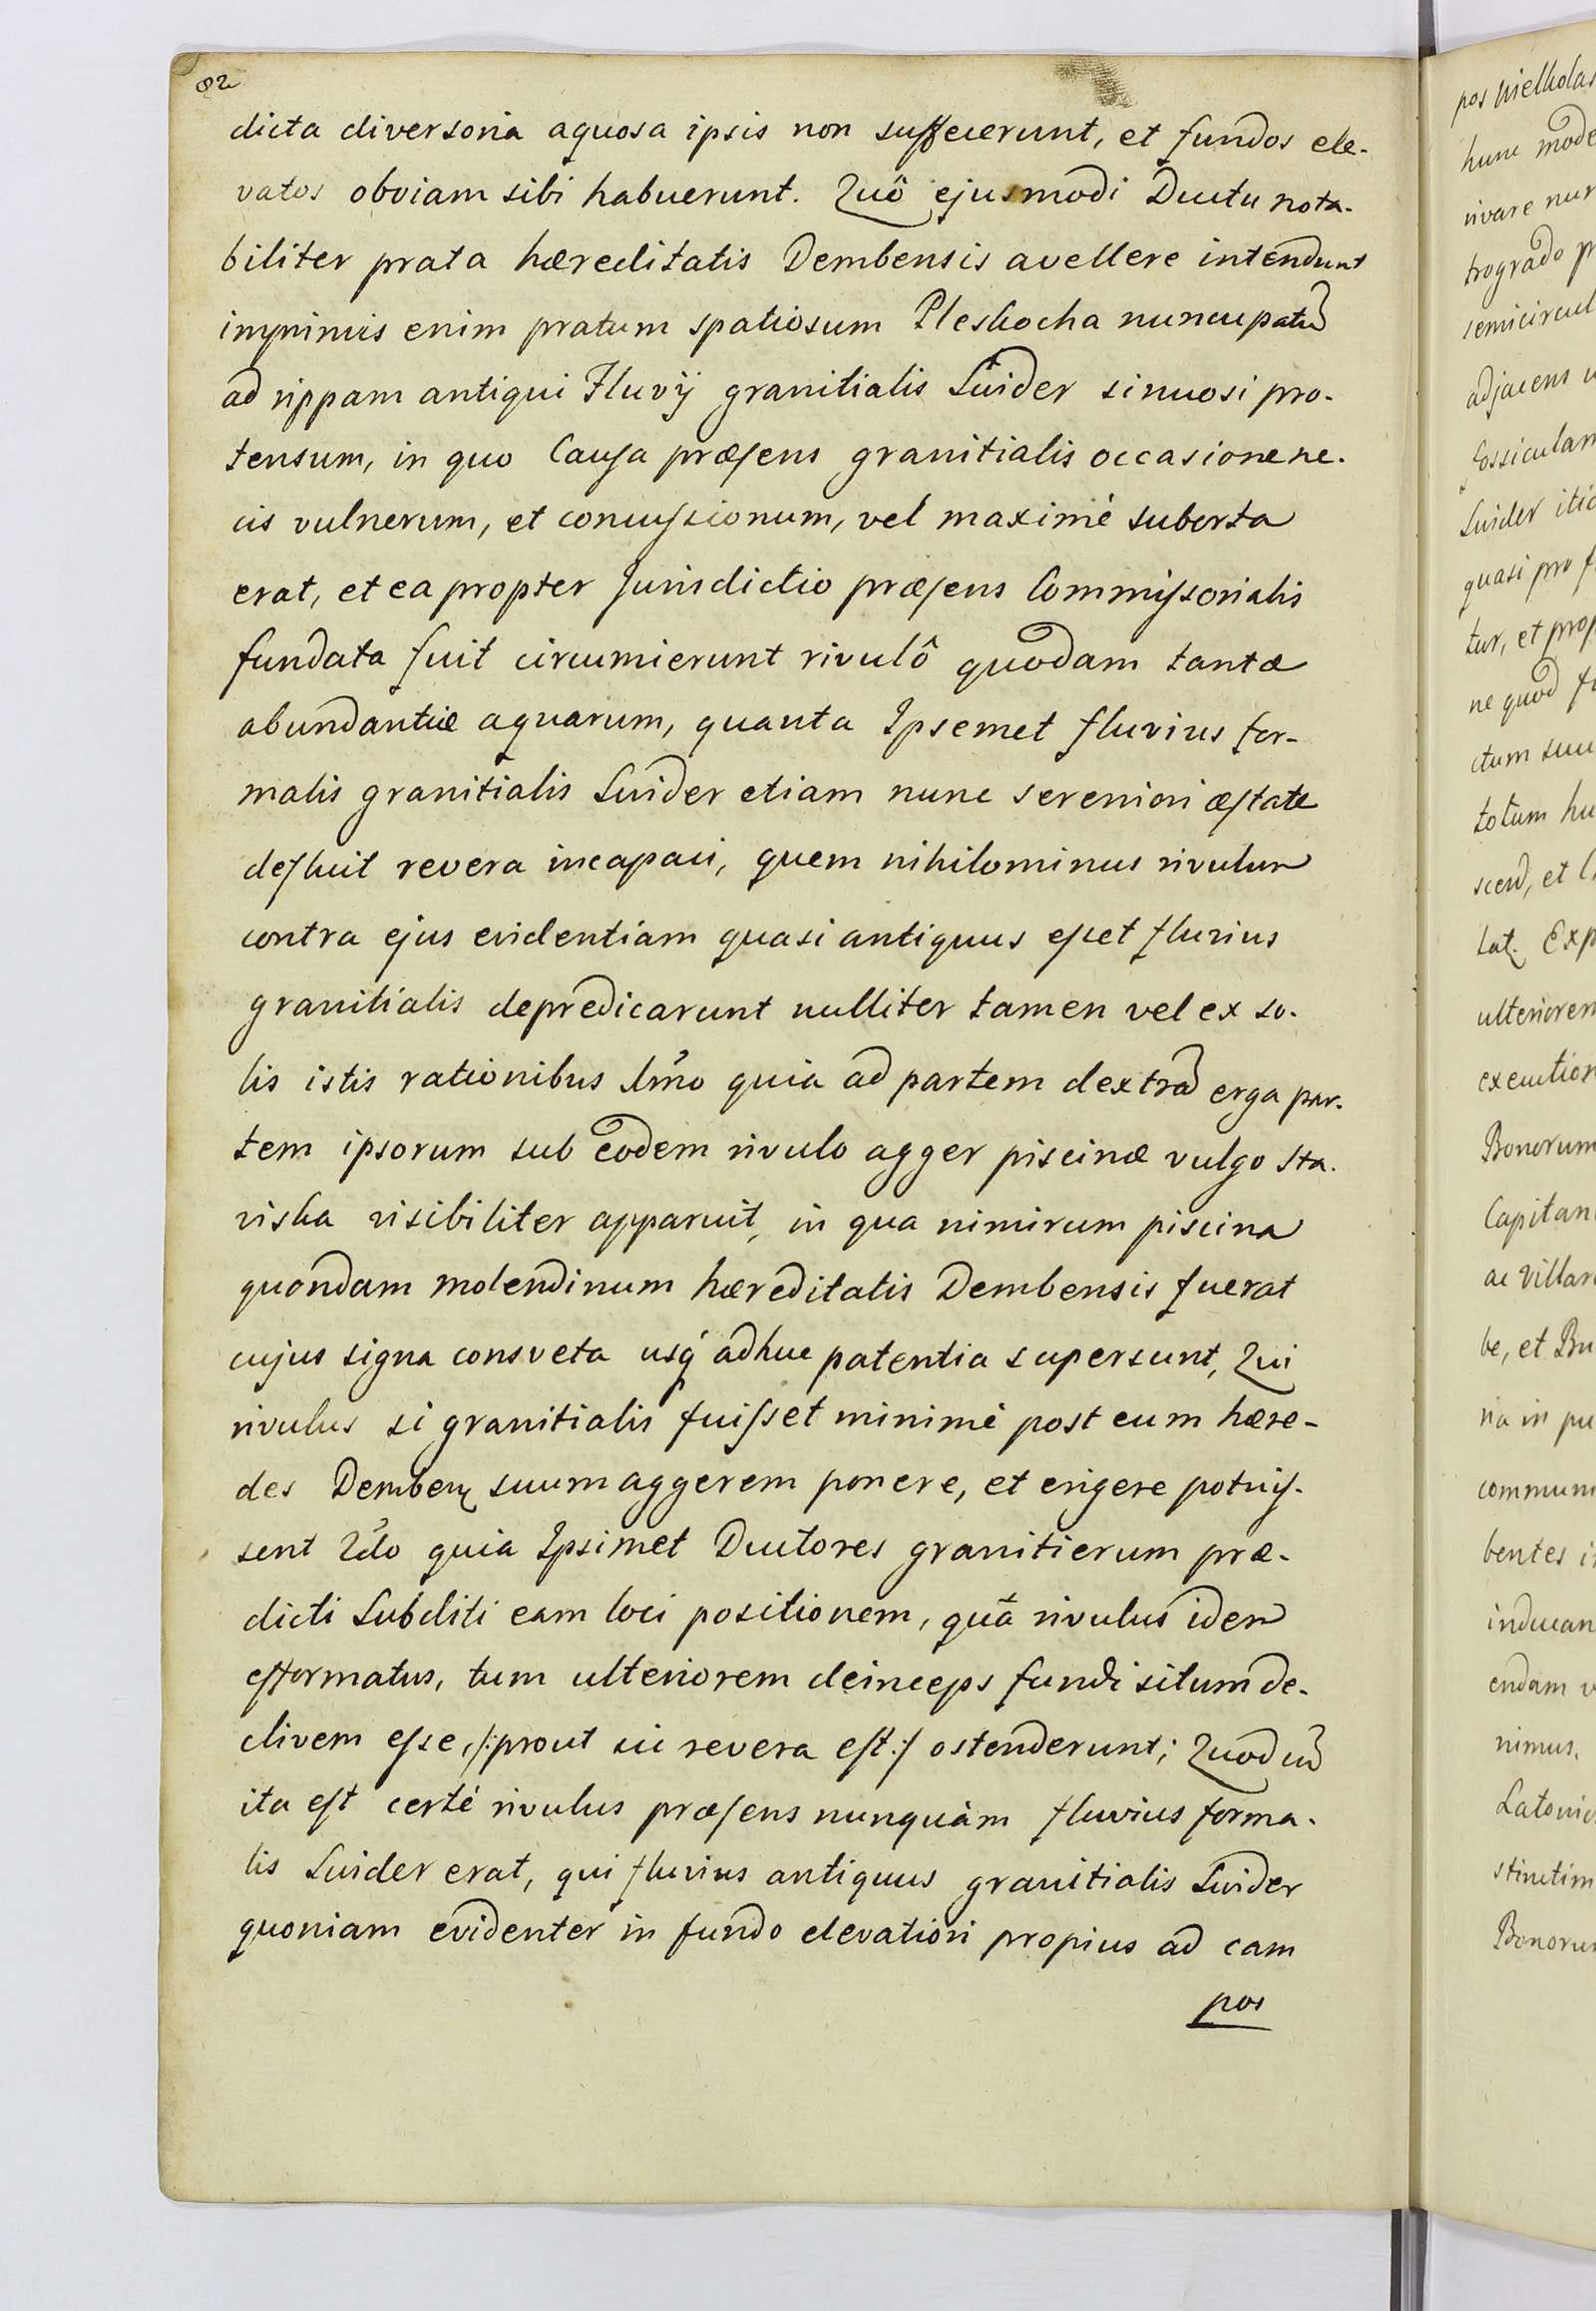 82
dicta diversoria aquosa ipsis non suffecerunt, et fundos ele-
vatos obviam sibi habuerunt. Quô ejusmodi Ductu nota-
biliter prata hæreditatis Dembensis avellere intendunt
inprimis enim pratum spatiosum Pleskocha nuncupatũ
ad rippam antiqui Fluvÿ granitialis Suider sinuosi pro-
tensum, in quo Causa præsens granitialis occasione ne-
cis vulnerum, et concussionum, vel maximè suborta
erat, et ea propter Jurisdictio præsens Commissorialis
fundata fuit circumierunt rivulô quodam tantæ
abundantiæ aquarum, quanta Ipsemet fluvius for-
malis granitialis Suider etiam nunc sereniori æstate
defluit revera incapaci, quem nihilominus rivulum
contra ejus evidentiam quasi antiquus esset fluvius
granitialis depredicarunt nulliter tamen vel ex so-
lis istis rationibus 1mo quia ad partem dextrã erga par-
tem ipsorum sub eodem rivulo agger piscinæ vulgo sta-
viska visibiliter apparuit, in qua nimirum piscina
quondam molendinum hæreditatis Dembensis fuerat
cujus signa consveta usq́ adhuc patentia supersunt, Qui
rivulus si granitialis fuisset minimè post eum hære-
des Demben̨ suum aggerem ponere, et erigere potuis-
sent 2do quia Ipsimet Ductores granitierum præ-
dicti Subditi eam loci positionem, quâ rivulus idem
efformatus, tum ulteriorem deinceps fundi situm de-
clivem esse, /:prout sic revera est:/ ostenderunt; Quod cũ
ita est certè rivulus præsens nunquàm fluvius forma-
lis Suider erat, qui fluvius antiquus granitialis Suider
quoniam evidenter in fundo elevatiori propius ad cam
pos
pos
hunc
trogrado
adjacens
Suider
quasi pro
tur, et
ne quod
ctum
totum
scend, et
tat. Exp
ulteriorem
Bonorum
Capitan
ac Villar
be, et
ria in
bentes
inducan
endam
nimus.